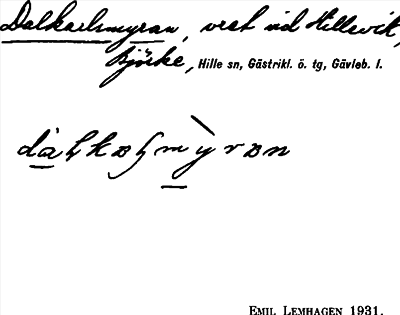 Dalkarlsmyran, vest vid Hillevik,
Björke, Hille sn, Gästrikl. ö. tg, Gävleb. l.
EMIL LEMHAGEN 1931.